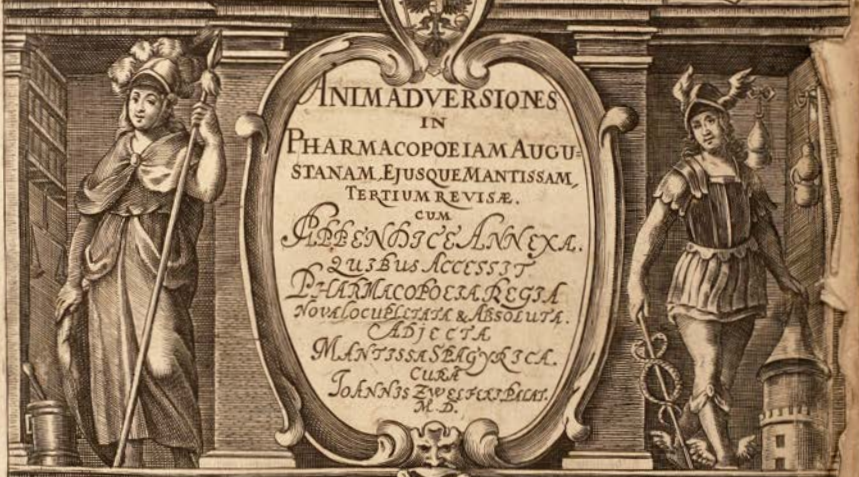 ANIMADVERSIONES
IN
PHARMACOPOEIAM AUGU=
STANAM, EJUSQUE MANTISSAM,
TERTIUM REVISÆ.
CUM
APPENDICE ANNEXA.
QUIBUS ACCESSIT
PHARMACOPOEIA REGIA
NOVA LOCUPLETATA & ABSOLUTA.
ADJECTA
MANTISSA SPAGYRICA.
CURA
JOANNIS ZWELFERI PALAT.
M. D.